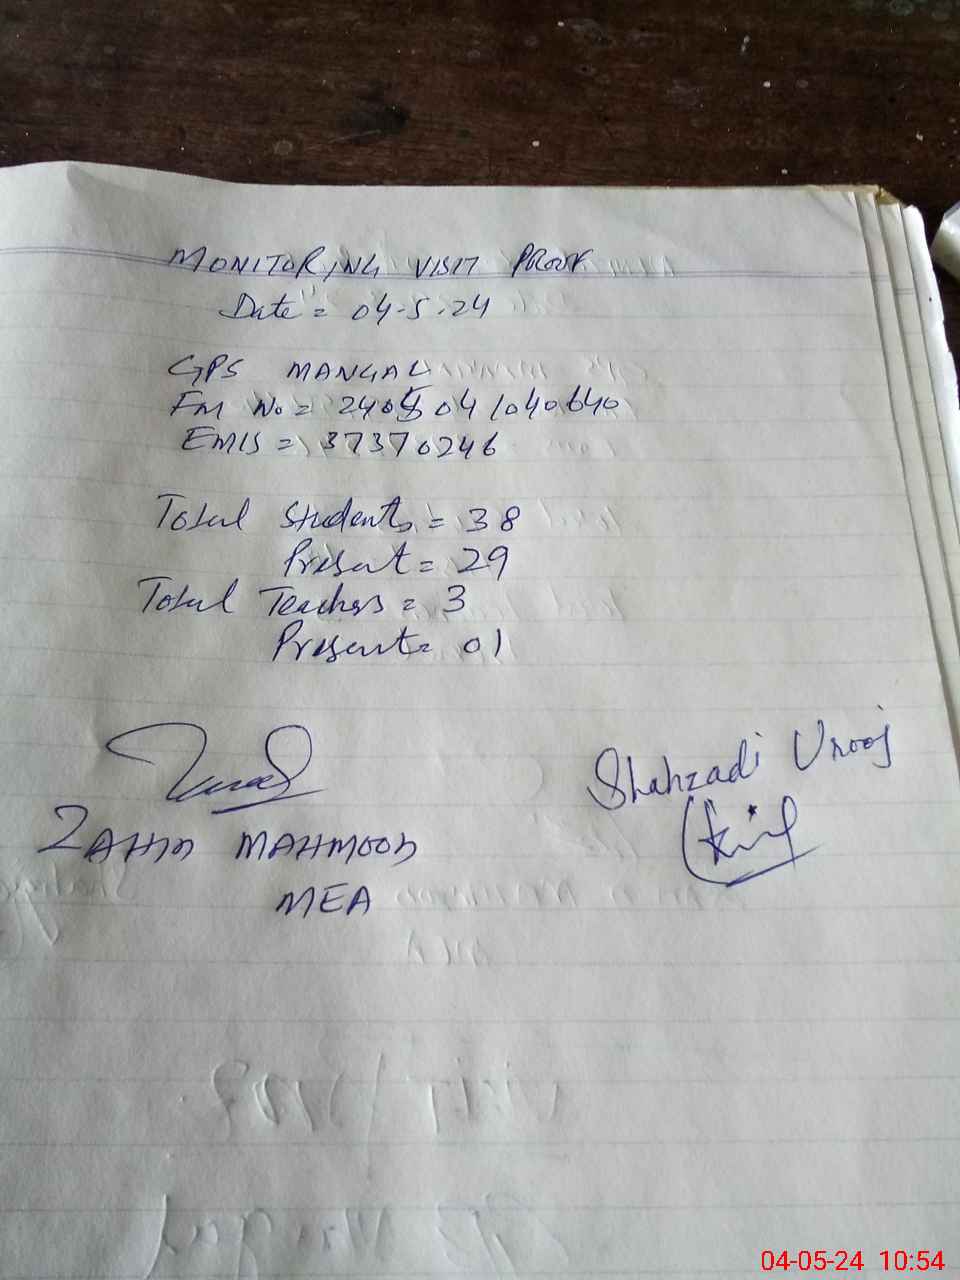 MONITORING VISIT PROOF
Date = 04-5-24
GPS MANGAL
Fm No = 240504 1040640
EMIS = 37370246
Total Students = 38
Present = 29
Total Teachers = 3
Present = 01
Shahzadi Urooj
ZAHID MAHMOOD
MEA
04-05-24 10:54